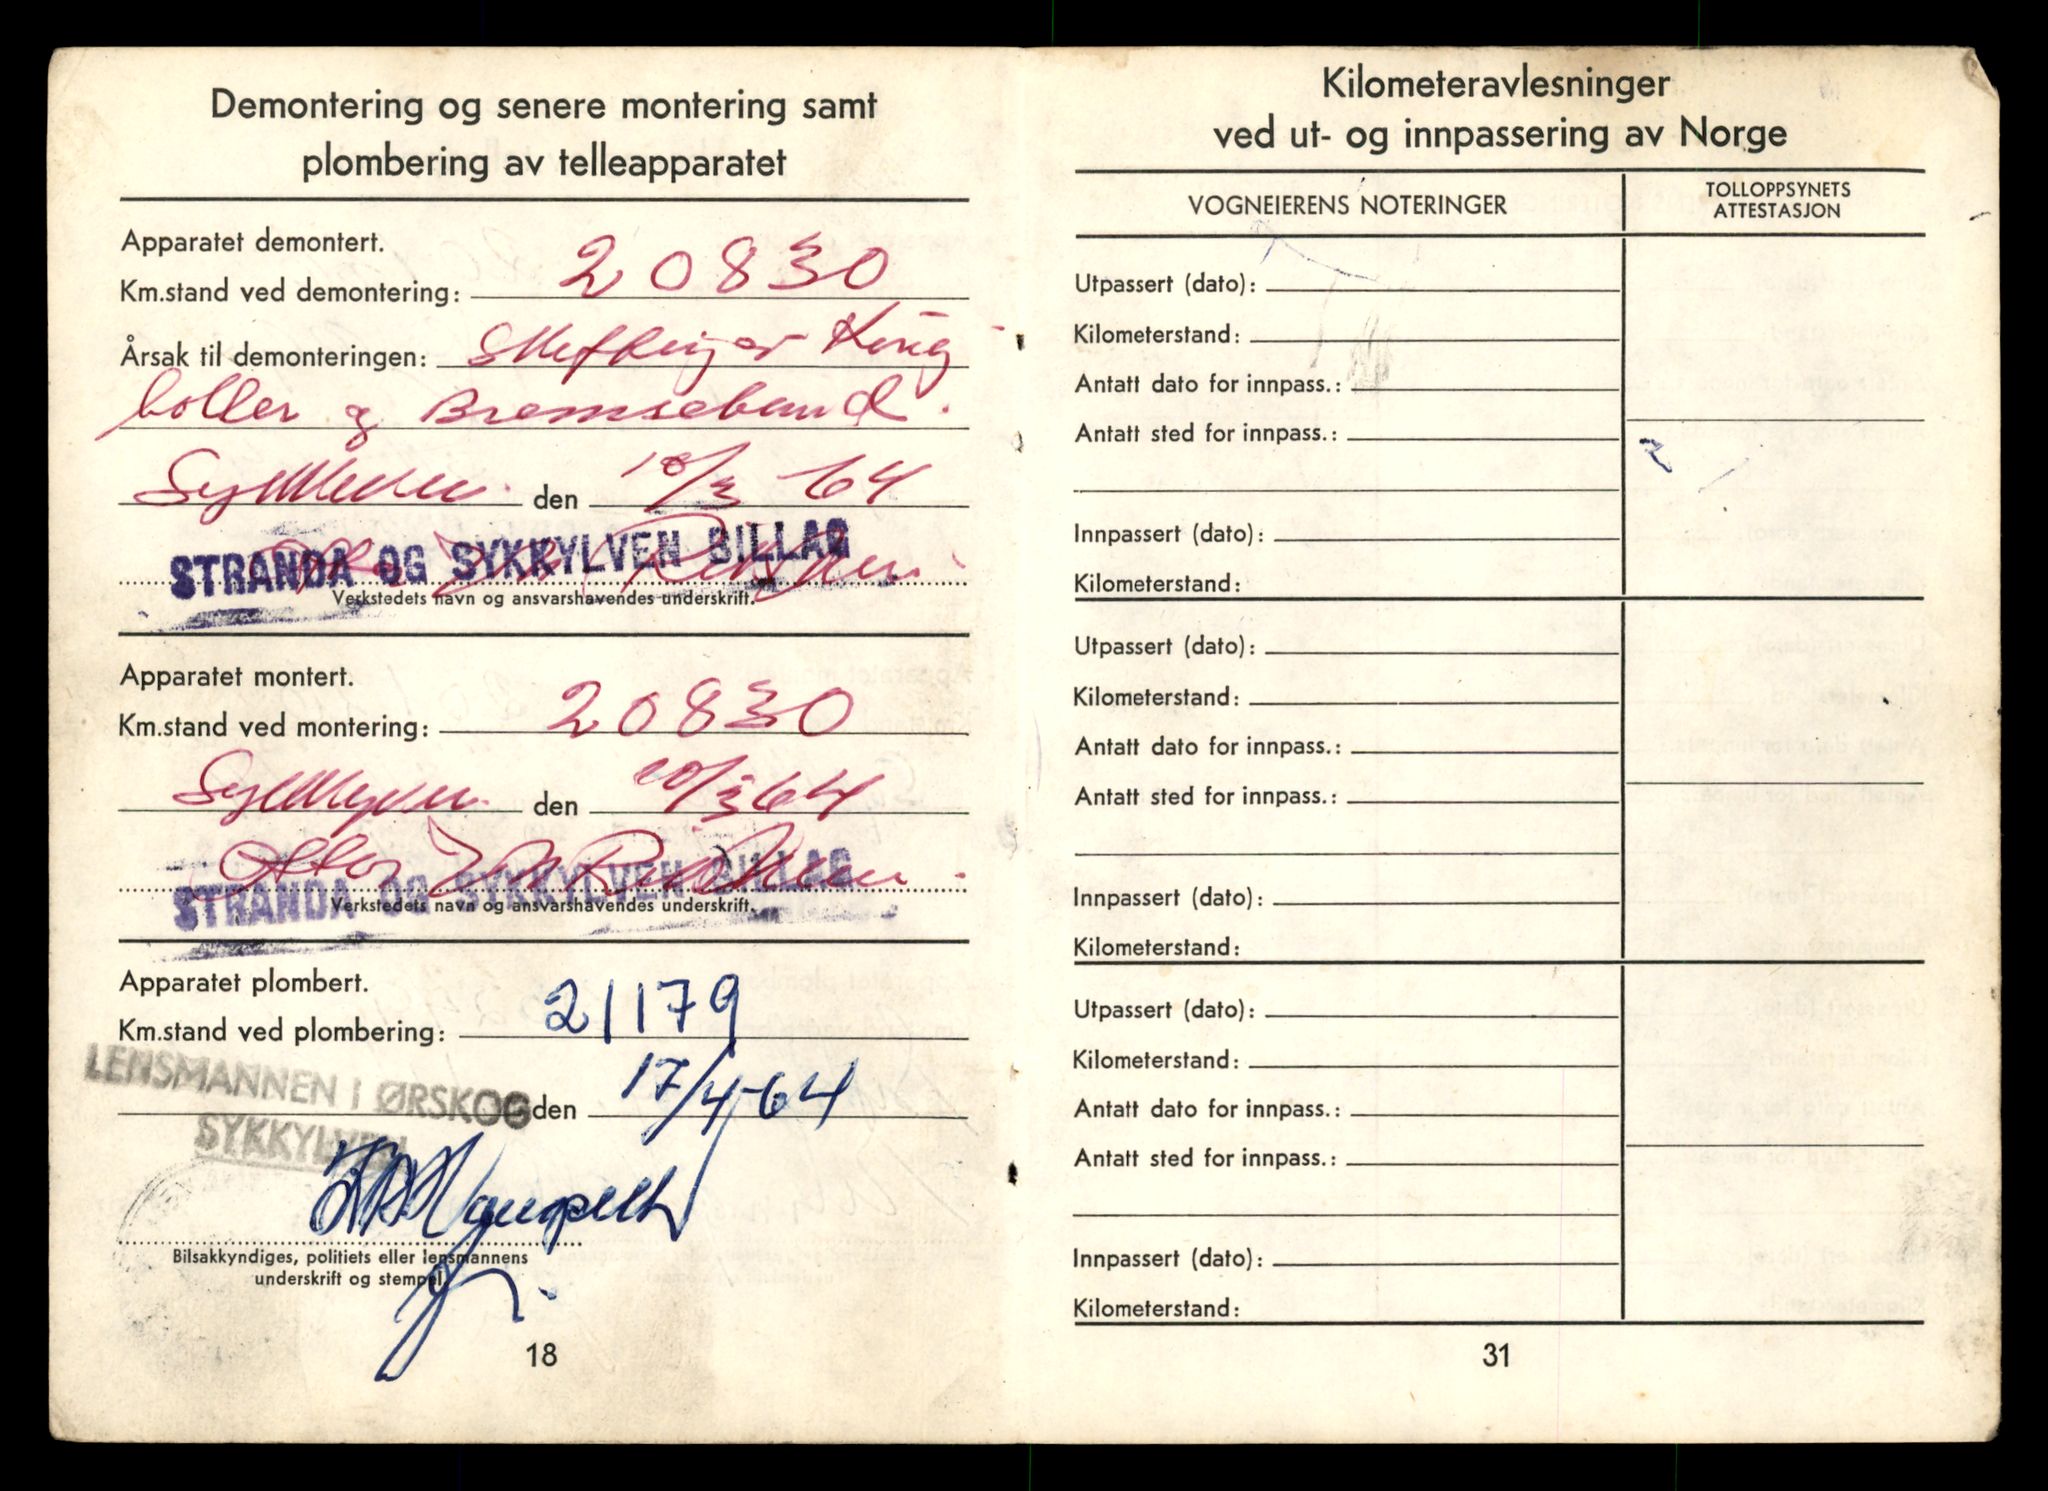 Demontering og senere montering samt
plombering av telleapparatet
Apparatet demontert.
Km.stand ved demontering: 20830
Årsak til demonteringen: King
boller og Bremsebånd.
den 10/3 64
STRANDA OG SYKKYLVEN BILLAG
Verkstedets navn og ansvarshavendes underskrift.
Apparatet montert.
Km.stand ved montering: 20830
den 20/3 64
STRANDA OG SYKKYLVEN BILLAG
Verkstedets navn og ansvarshavendes underskrift.
Apparatet plombert.
Km.stand ved plombering: 21179
LENSMANNEN I ØRSKOG den 17/4-64
SYKKYLVEN
Bilsakkyndiges, politiets eller lensmannens
underskrift og stempel.
18
Kilometeravlesninger
ved ut- og innpassering av Norge
VOGNEIERENS NOTERINGER
TOLLOPPSYNETS
ATTESTASJON
Utpassert (dato):
Kilometerstand:
Antatt dato for innpass.:
Antatt sted for innpass.:
Innpassert (dato):
Kilometerstand:
Utpassert (dato):
Kilometerstand:
Antatt dato for innpass.:
Antatt sted for innpass.:
Innpassert (dato):
Kilometerstand:
Utpassert (dato):
Kilometerstand:
Antatt dato for innpass.:
Antatt sted for innpass.:
Innpassert (dato):
Kilometerstand:
31